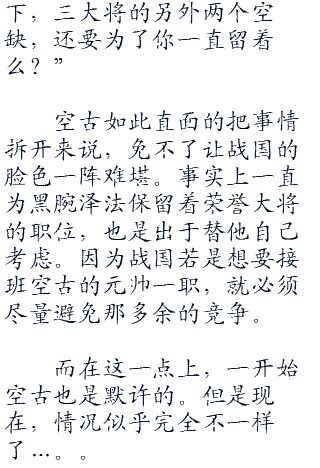 下，三大将的另外两个空
缺，还要为了你一直留着
么？”
空古如此直面的把事情
拆开来说，免不了让战国的
脸色一阵难堪。事实上一直
为黑腕泽法保留着荣誉大将
的职位，也是出于替他自己
考虑。因为战国若是想要接
班空古的元帅一职，就必须
尽量避免那多余的竞争。
而在这一点上，一开始
空古也是默许的。但是现
在，情况似乎完全不一样
了…。。